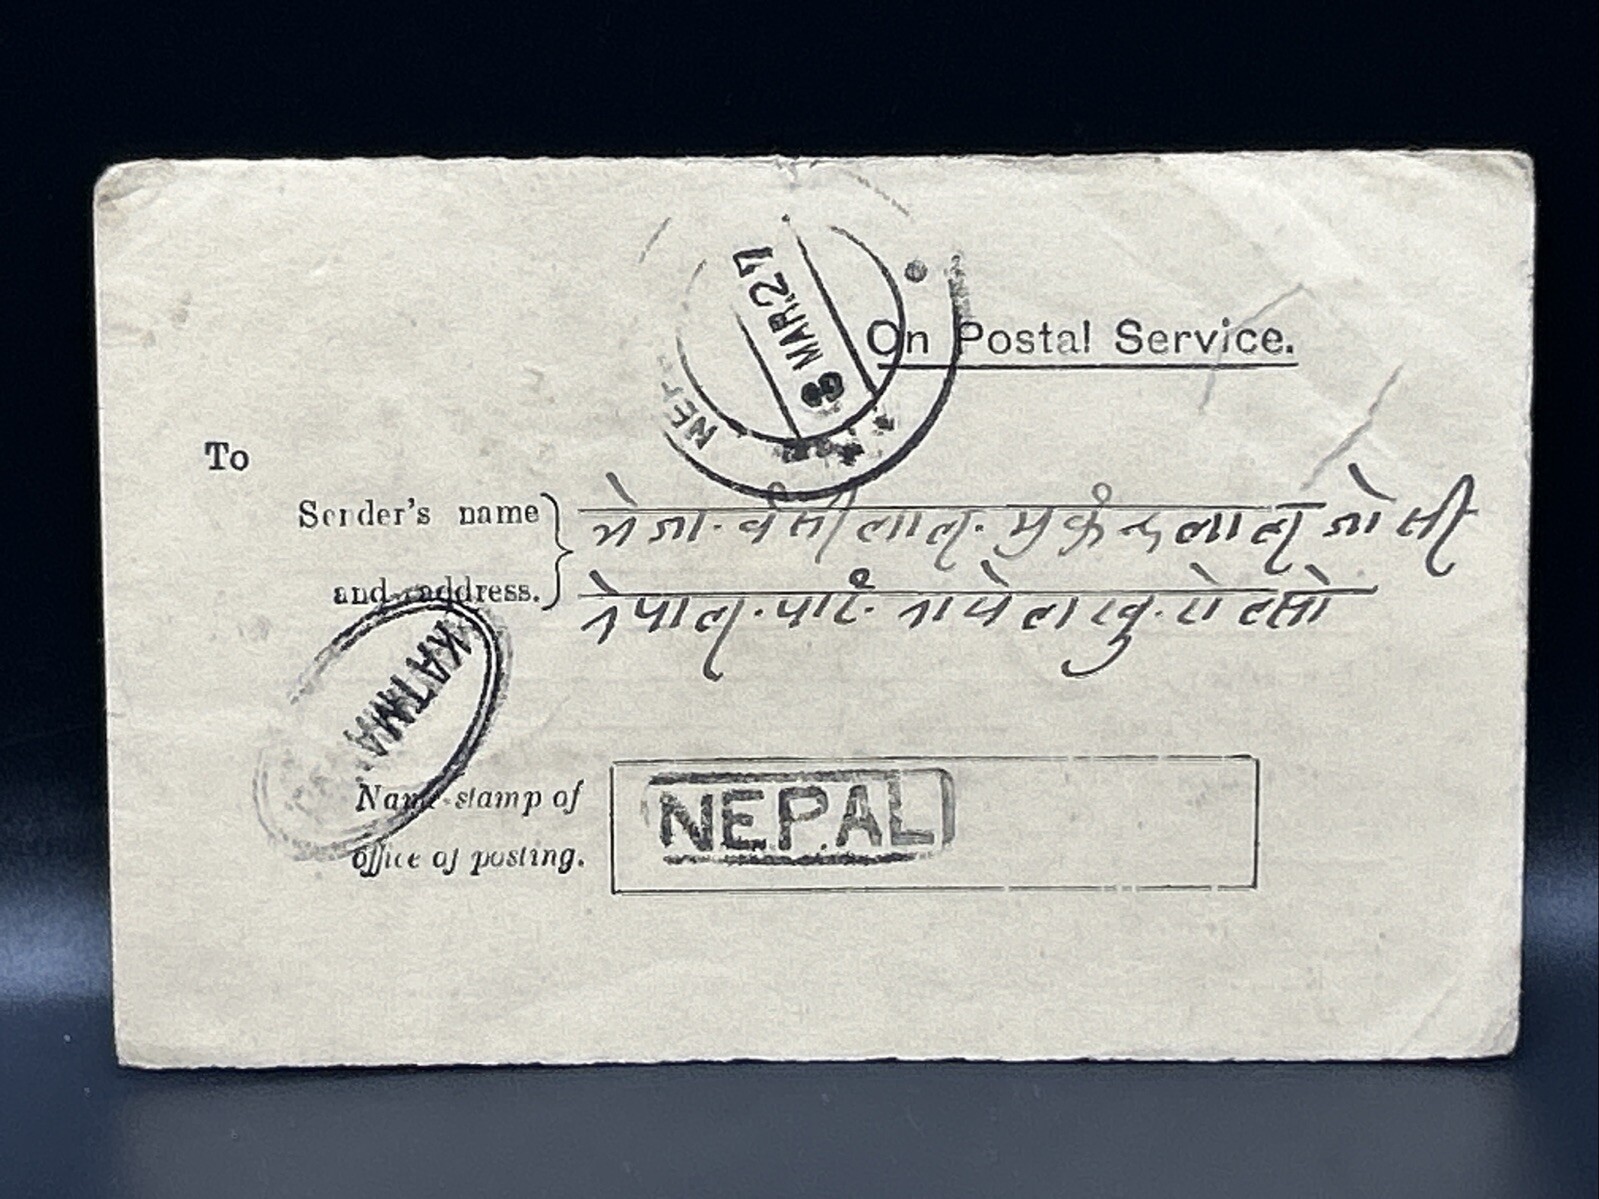 8 MAR. 27
NEP
On Postal Service.
To
Sender's name
and address.
भेजा. वंसीलाल. मुकुंन्दलाल जोसी
नेपाल. पाटं.
KATMA
NEPAL
Name-stamp of
office of posting.